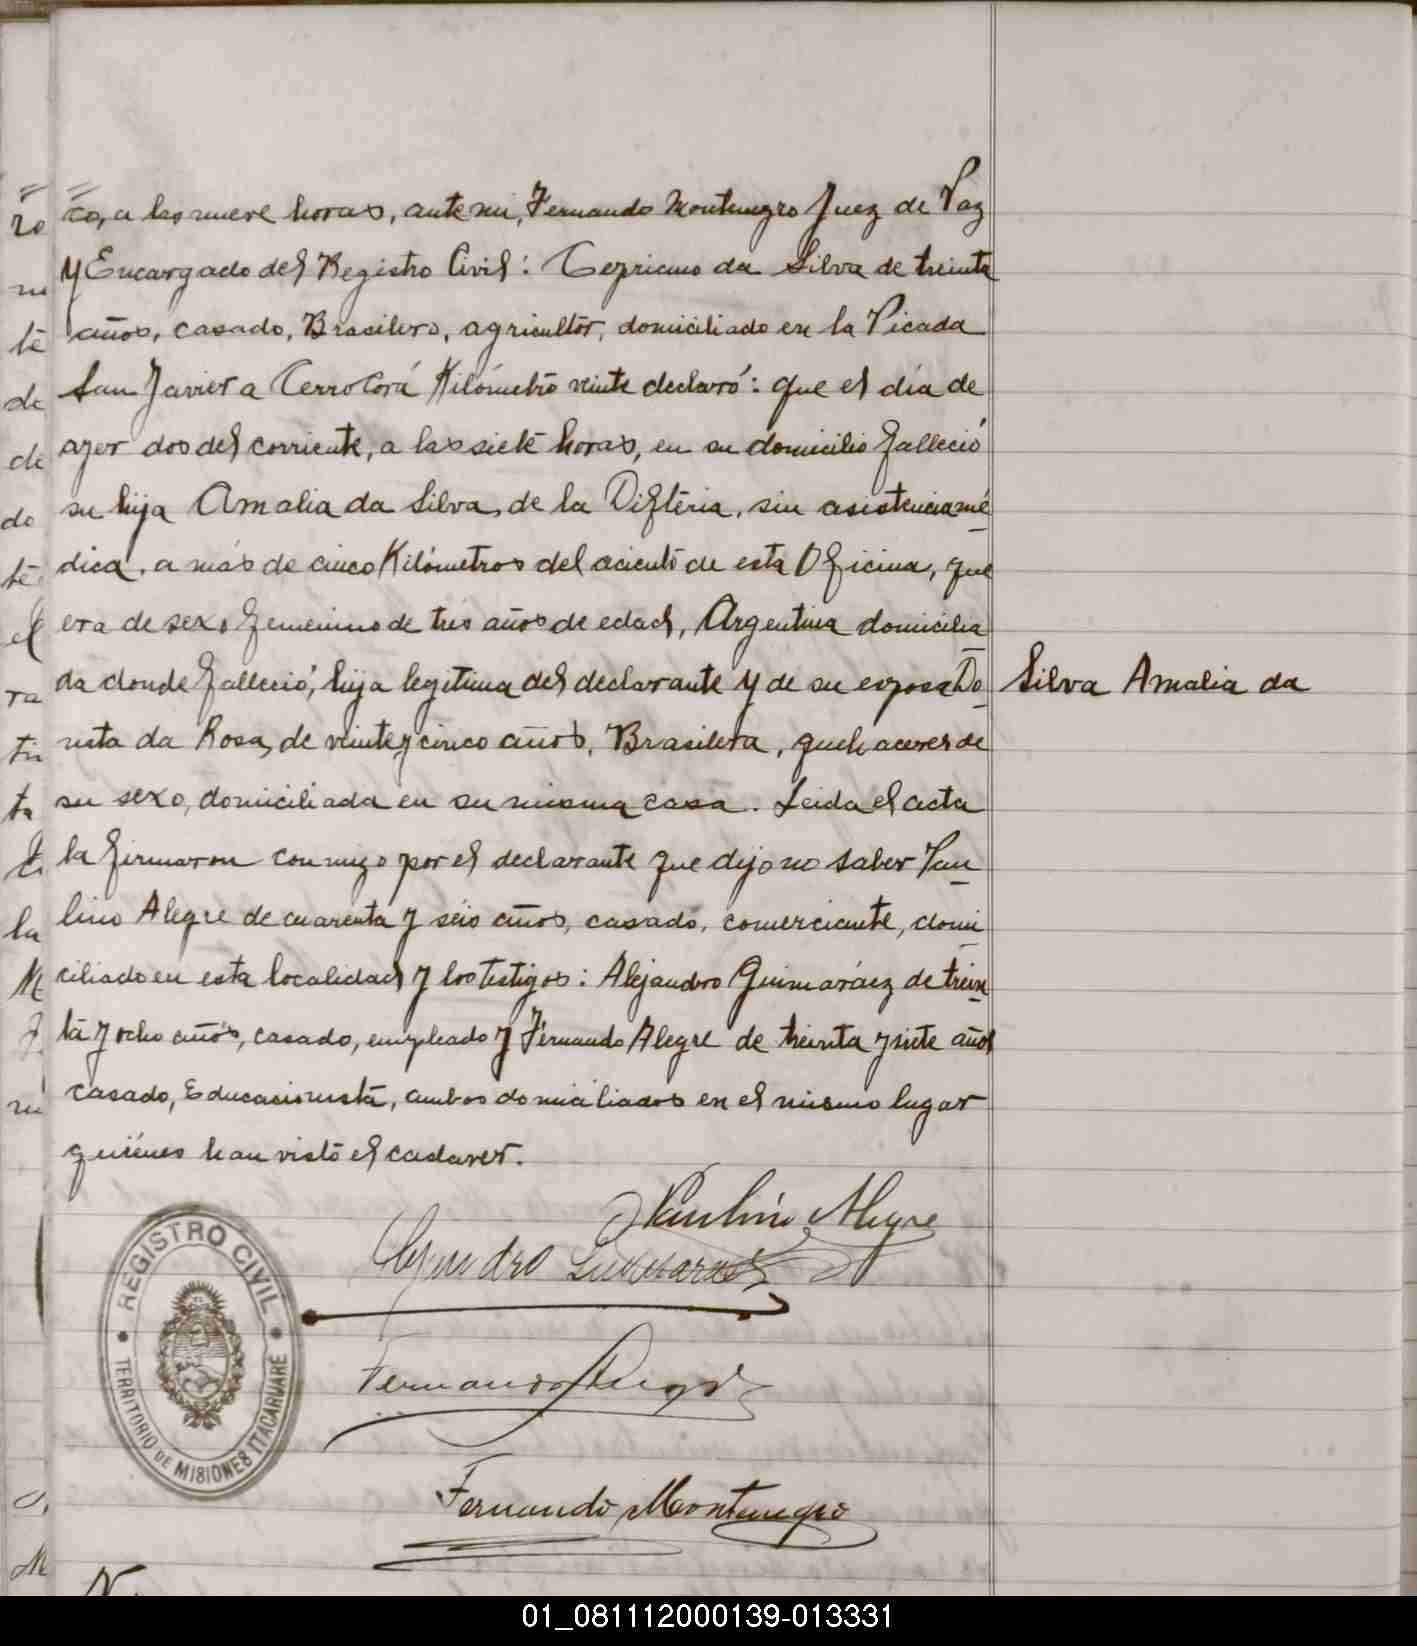 co, a las nueve horas, ante mi, Fernando Montenegro Juez de Paz
y Encargado del Registro Civil: Cepriano da Silva de treinta
años, casado, Brasilero, agricultor, domiciliado en la Picada
San Javier a Cerro Corá Kilómetro veinte declaró: que el día de
ayer dos del corriente, a las siete horas, en su domicilio falleció
su hija Amalia da Silva, de la Difteria, sin asistencia mé
dica, a más de cinco Kilómetros del aciento de esta Oficina, que
era de sexo femenino de tres años de edad, Argentina domicilia
da donde falleció, hija legitima del declarante y de su esposa Do
Silva Amalia da
rista da Rosa, de veinte y cinco años, Brasilera, quehaceres de
su sexo, domiciliada en su misma casa. Leida el acta
la firmaron conmigo por el declarante que dijo no saber Pau
lino Alegre de cuarenta y seis años, casado, comerciante, domi
ciliado en esta localidad y los testigos: Alejandro Guimaráez de trein
ta y ocho años, casado, empleado y Fernando Alegre de treinta y siete años
casado, Educacionista, ambos domiciliados en el mismo lugar
quiénes han visto el cadaver.
Paulino Alegre
Alejandro Guimaraez
Fernando Alegre
Fernando Montenegro
REGISTRO CIVIL
TERRITORIO DE MISIONES ITACARUARE
ro
ni
te
de
de
do
te
el
ra
ta
la
M
01_081112000139-013331